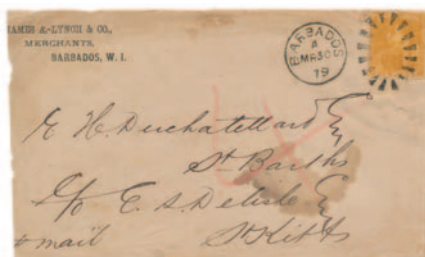 JAMES A. LYNCH & CO.,
MERCHANTS,
BARBADOS, W. I.
BARBADOS
A
MR 30
79
E H. Durchatellard Esq
St Barths
C/o E. S. Delisle Esq
mail St Kitts